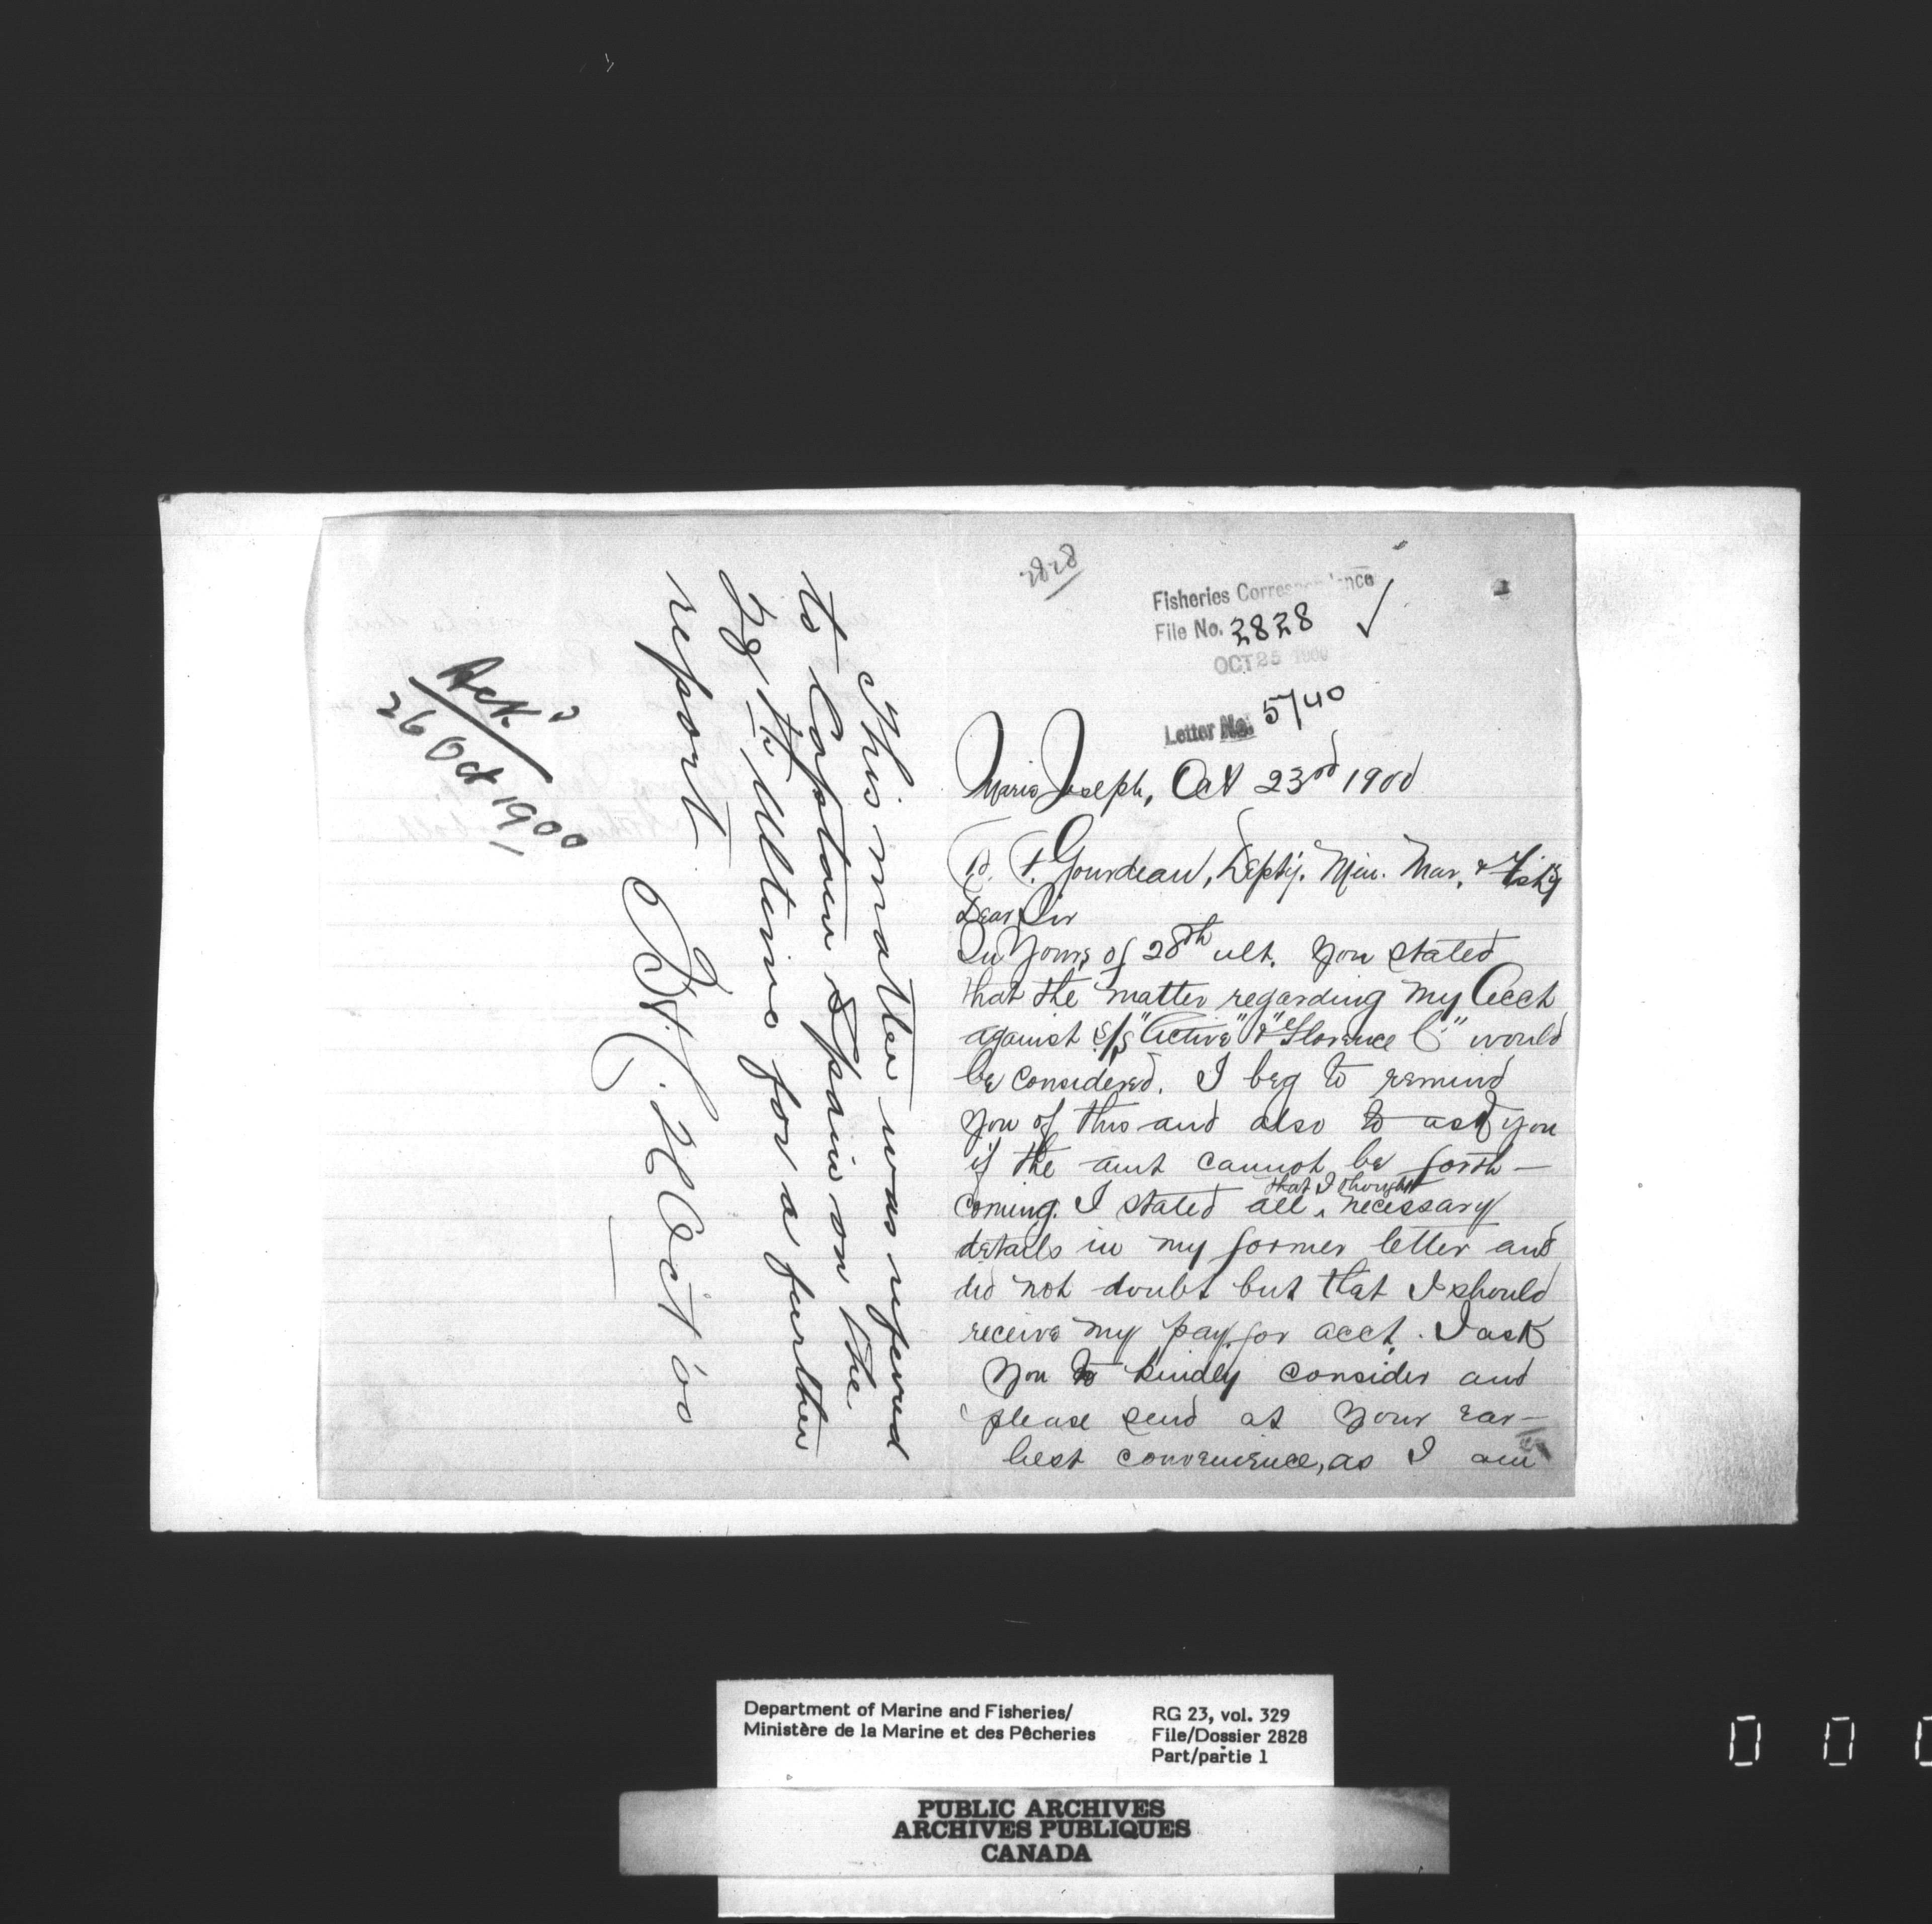 2828
Fisheries Correspondence
File No. 2828
OCT 25 1900
Letter No. 5740
Maria Joseph, Oct 23rd 1900
F. Gourdeau, Depty. Min. Mar. & Fish'y
Dear Sir
In Yours of 28th ult. you stated
that the matter regarding my Acct
against S/S "Active" & "Florence C" would
be considered. I beg to remind
you of this and also to ask you
if the amt cannot be forth-
coming. I stated all that I thought necessary
details in my former letter and
did not doubt but that I should
receive my pay for acct. I ask
you to kindly consider and
please send at your ear-
liest convenience, as I am
This matter was refered
to Captain Spain on the
for a further
report
Oct 00
Ack'd
26 Oct 1900
Department of Marine and Fisheries/
Ministère de la Marine et des Pêcheries
RG 23, vol. 329
File/Dossier 2828
Part/partie 1
PUBLIC ARCHIVES
ARCHIVES PUBLIQUES
CANADA
0 0 0